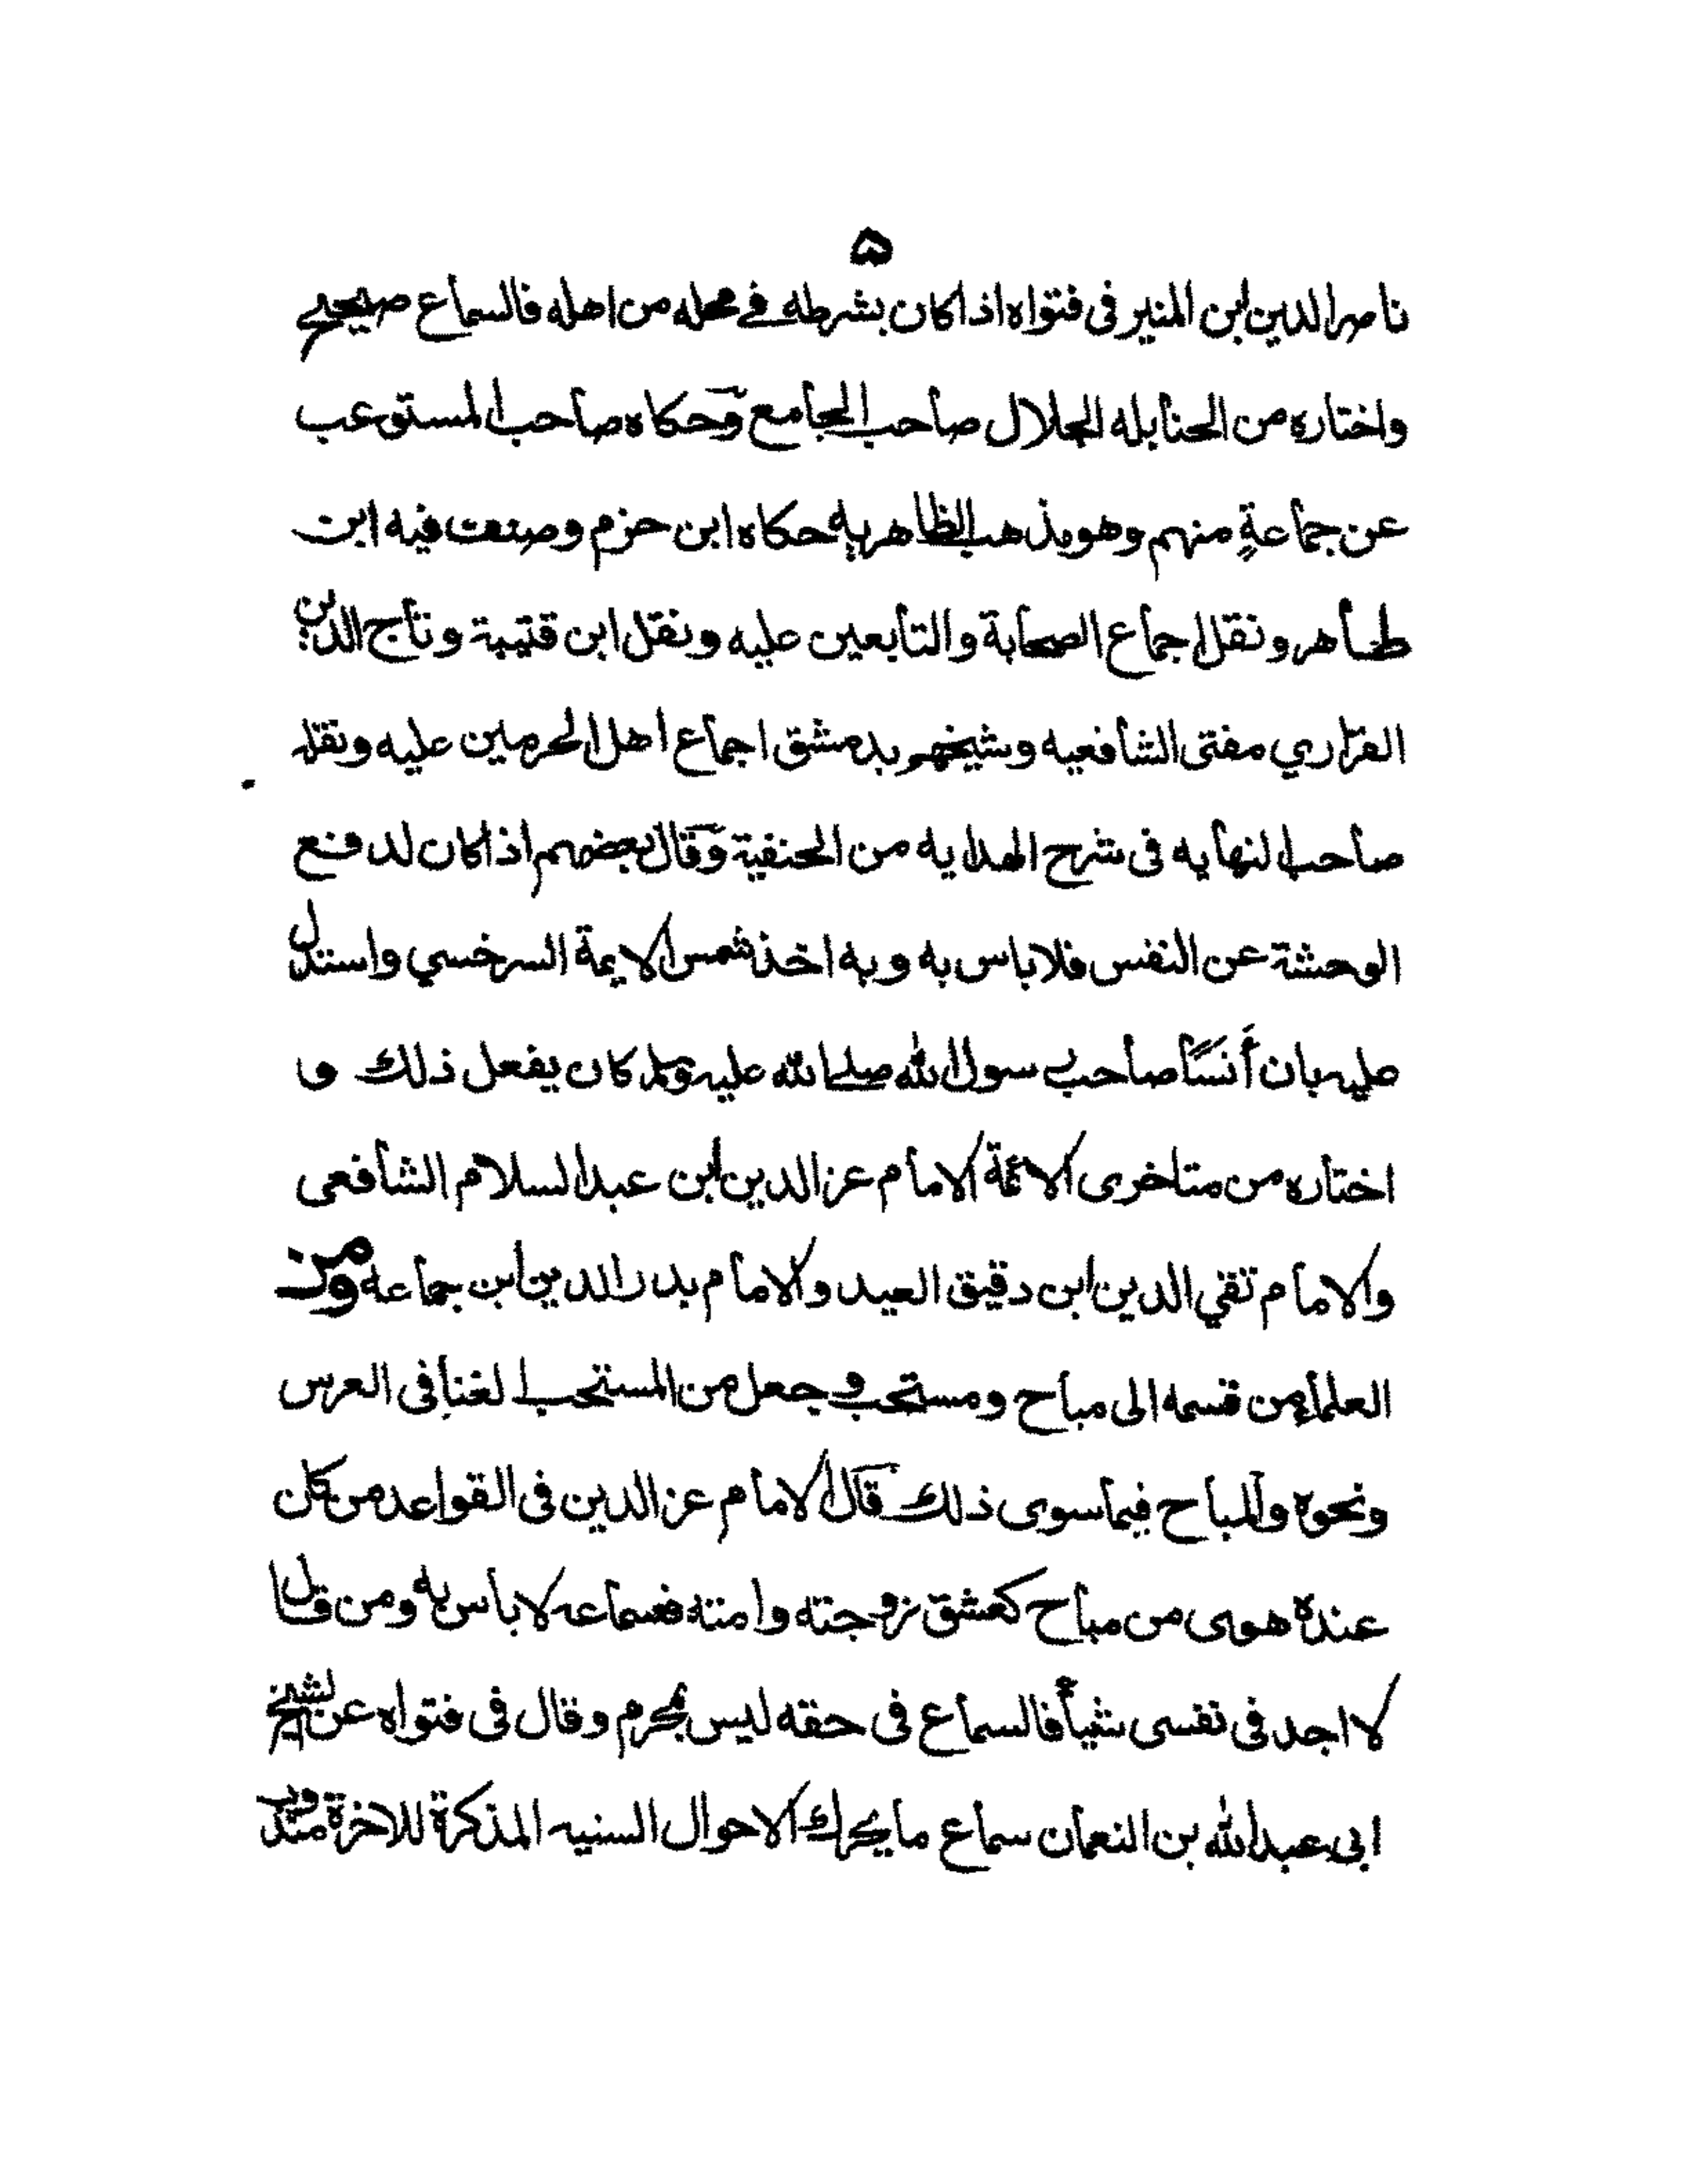 ۵
ناصر الدين ابن المنير فى فتواه اذا كان بشرطه فے محله من اهله فالسماع صحيح
واختاره من الحنابله الجلال صاحب الجامع وحكاه صاحب المستوعب
عن جماعةٍ منهم وهو مذهب الظاهريه حكاه ابن حزم وصنف فيه ابن
طاهر ونقل اجماع الصحابة والتابعين عليه ونقل ابن قتيبة وتاج الدين
الفزاري مفتى الشافعيه وشيخهم بدمشق اجماع اهل الحرمين عليه ونقله
صاحب النهايه فى شرح الهدايه من الحنفية وقال بعضهم اذا كان لدفع
الوحشة عن النفس فلا باس به وبه اخذ شمس الايمة السرخسي واستدل
عليه بان أنسًا صاحب رسول الله صلے الله عليه وسلم كان يفعل ذلك و
اختاره من متاخرى الائمة الامام عز الدين ابن عبد السلام الشافعى
والامام تقي الدين ابن دقيق العيد والامام بدر الدين ابن جماعه ومن
العلماء من قسمه الى مباح ومستحب وجعل من المستحب الغنا فى العرس
ونحوه والمباح فيما سوى ذلك قال الامام عز الدين فى القواعد من كان
عنده هوى من مباح كعشق زوجته وامته فسماعه لا باس به ومن قال
لا اجد فى نفسى شيأ فالسماع فى حقه ليس بمحرم وقال فى فتواه عن الشيخ
ابى عبد الله بن النعمان سماع ما يحرك الاحوال السنيه المذكرة للاخرة مندوب